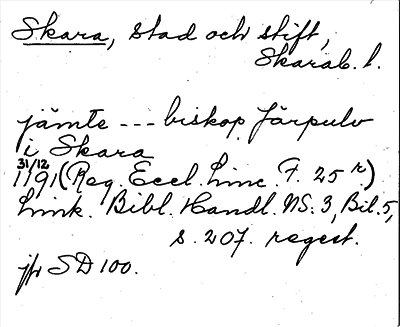 Skara, stad och stift,
Skarab. l.
jämte --- biskop Järpulv
i Skara
31/12
1191 (Reg. Eccl. Linc. F. 25 r)
Link. Bibl. Handl. NS. 3, Bil. 5,
s. 207. regest.
jfr SD 100.